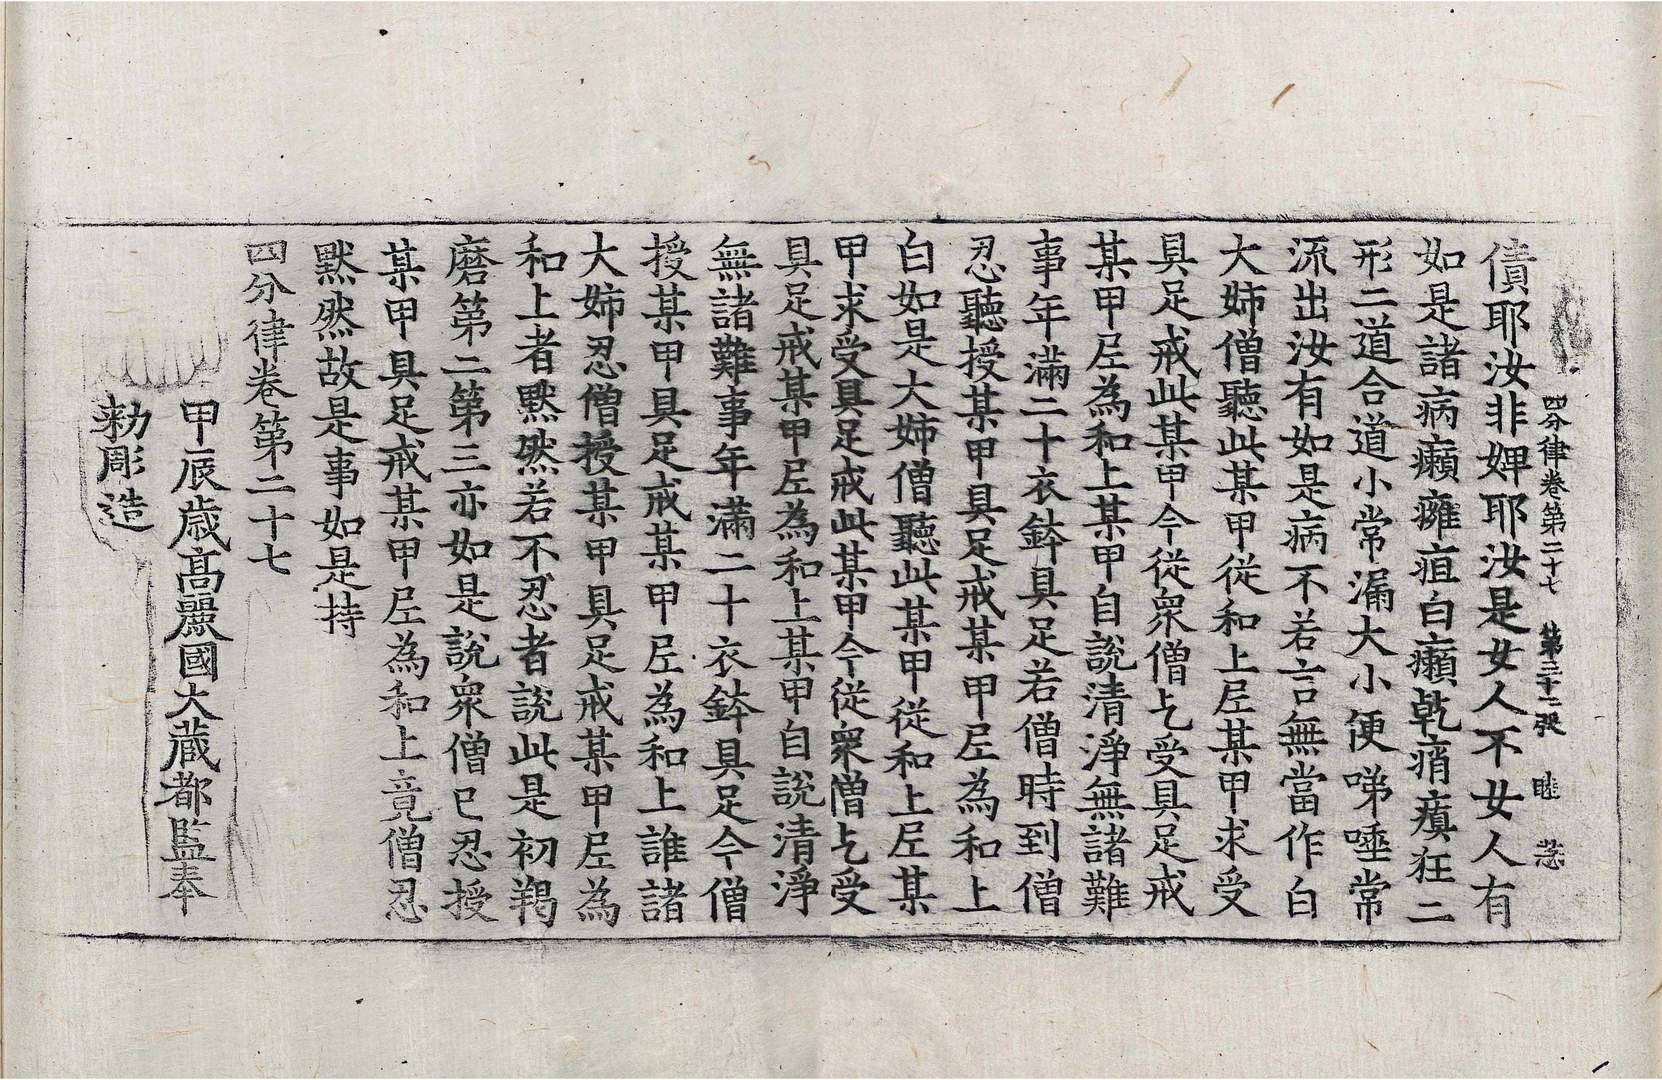 四分律卷第二十七 第三十二張 睦 莣
債耶汝非婢耶汝是女人不女人有
如是諸病癩癰疽白癩乾痟癲狂二
形二道合道小常漏大小便㖒唾常
流出汝有如是病不若言無當作白
大姉僧聽此某甲從和上尼某甲求受
具足戒此某甲今從衆僧乞受具足戒
某甲尼為和上某甲自說清淨無諸難
事年滿二十衣鉢具足若僧時到僧
忍聽授某甲具足戒某甲尼為和上
白如是大姉僧聽此某甲從和上尼某
甲求受具足戒此某甲今從衆僧乞受
具足戒某甲尼為和上某甲自說清淨
無諸難事年滿二十衣鉢具足今僧
授某甲具足戒某甲尼為和上誰諸
大姉忍僧授某甲具足戒某甲尼為
和上者黙然若不忍者說此是初羯
磨第二第三亦如是說衆僧已忍授
某甲具足戒某甲尼為和上竟僧忍
黙然故是事如是持
四分律卷第二十七
甲辰歲高麗國大藏都監奉
勑彫造